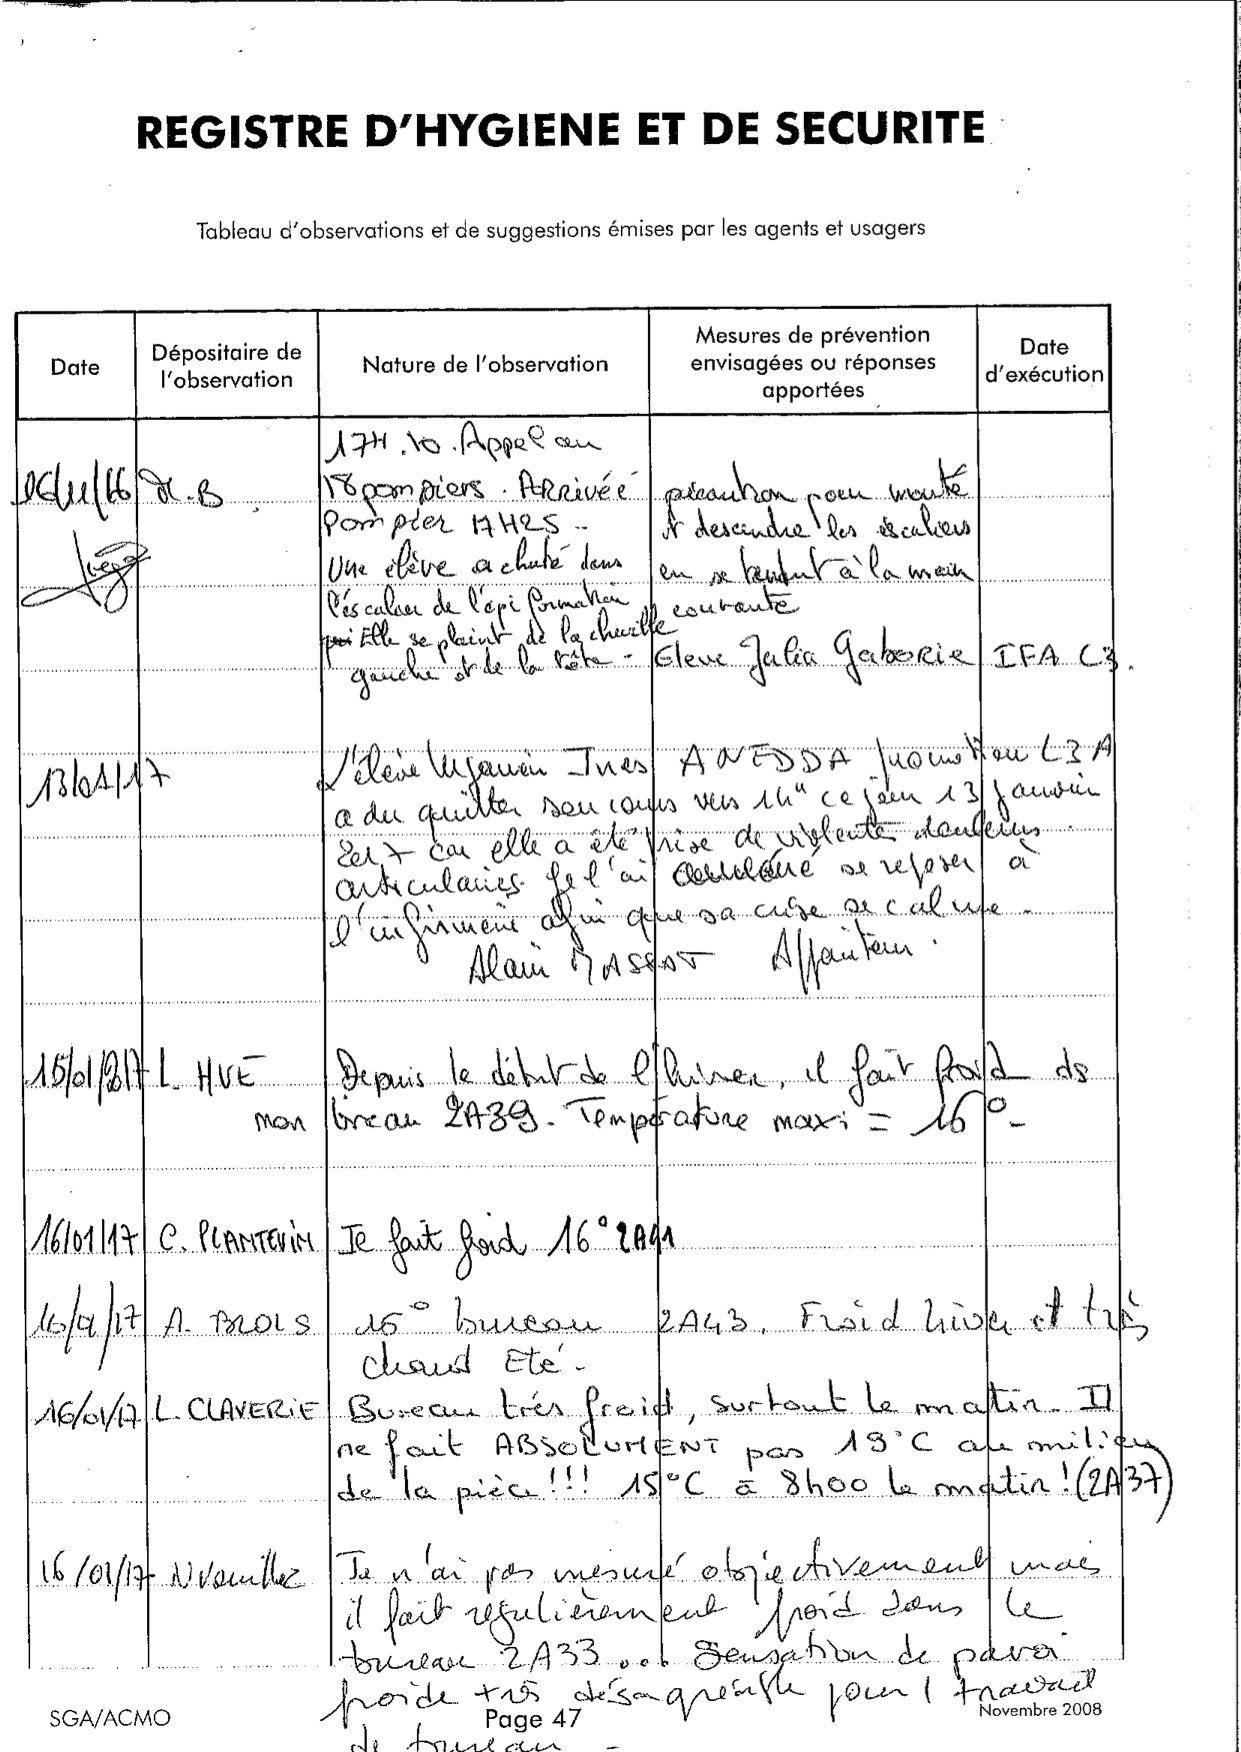 REGISTRE D'HYGIENE ET DE SECURITE
Tableau d'observations et de suggestions émises par les agents et usagers
Date
Dépositaire de l'observation
Nature de l'observation
Mesures de prévention envisagées ou réponses apportées
Date d'exécution
17H.10. Appel au
18 pompiers. ARRIVÉE
Pompier 17H25 -
Une élève a chuté dans
l'éscalier de l'épi formation
Elle se plaint de la cheville
gauche et de la tête -
M.B
précaution pour monté
descendre les éscaliers
en se tenant à la main
courante
Eleve Julia Gaborie IFA C3.
13/01/17
L'élève Ines ANEDDA promotion L3A
a du quitter son cours vers 14h ce jour 13 janvier
2017 car elle a été prise de violente douleurs
articulaires. Je l'ai se reposer à
l'infirmerie afin que sa crise se calme.
Alain MASSOT Appariteur.
15/01/2017 L. HUE Depuis le début de l'hiver, il fait froid ds
mon bureau 2A39. Température maxi = 16° -
16/01/17 C. PLANTEVIN Il fait froid 16° 2A41
16/01/17 A. BLOIS 15° bureau 2A43. Froid hiver et très
chaud Eté -
16/01/17 L. CLAVERIE Bureau très froid, surtout le matin. Il
ne fait ABSOLUMENT pas 19°C au milieu
de la pièce !!! 15°C à 8h00 le matin ! (2A37)
16/01/17 Je n'ai pas mesuré objectivement mais
il fait régulièrement froid dans le
bureau 2A33... Sensation de paroi
froide très désagréable pour l travail
de bureau -
SGA/ACMO
Page 47
Novembre 2008